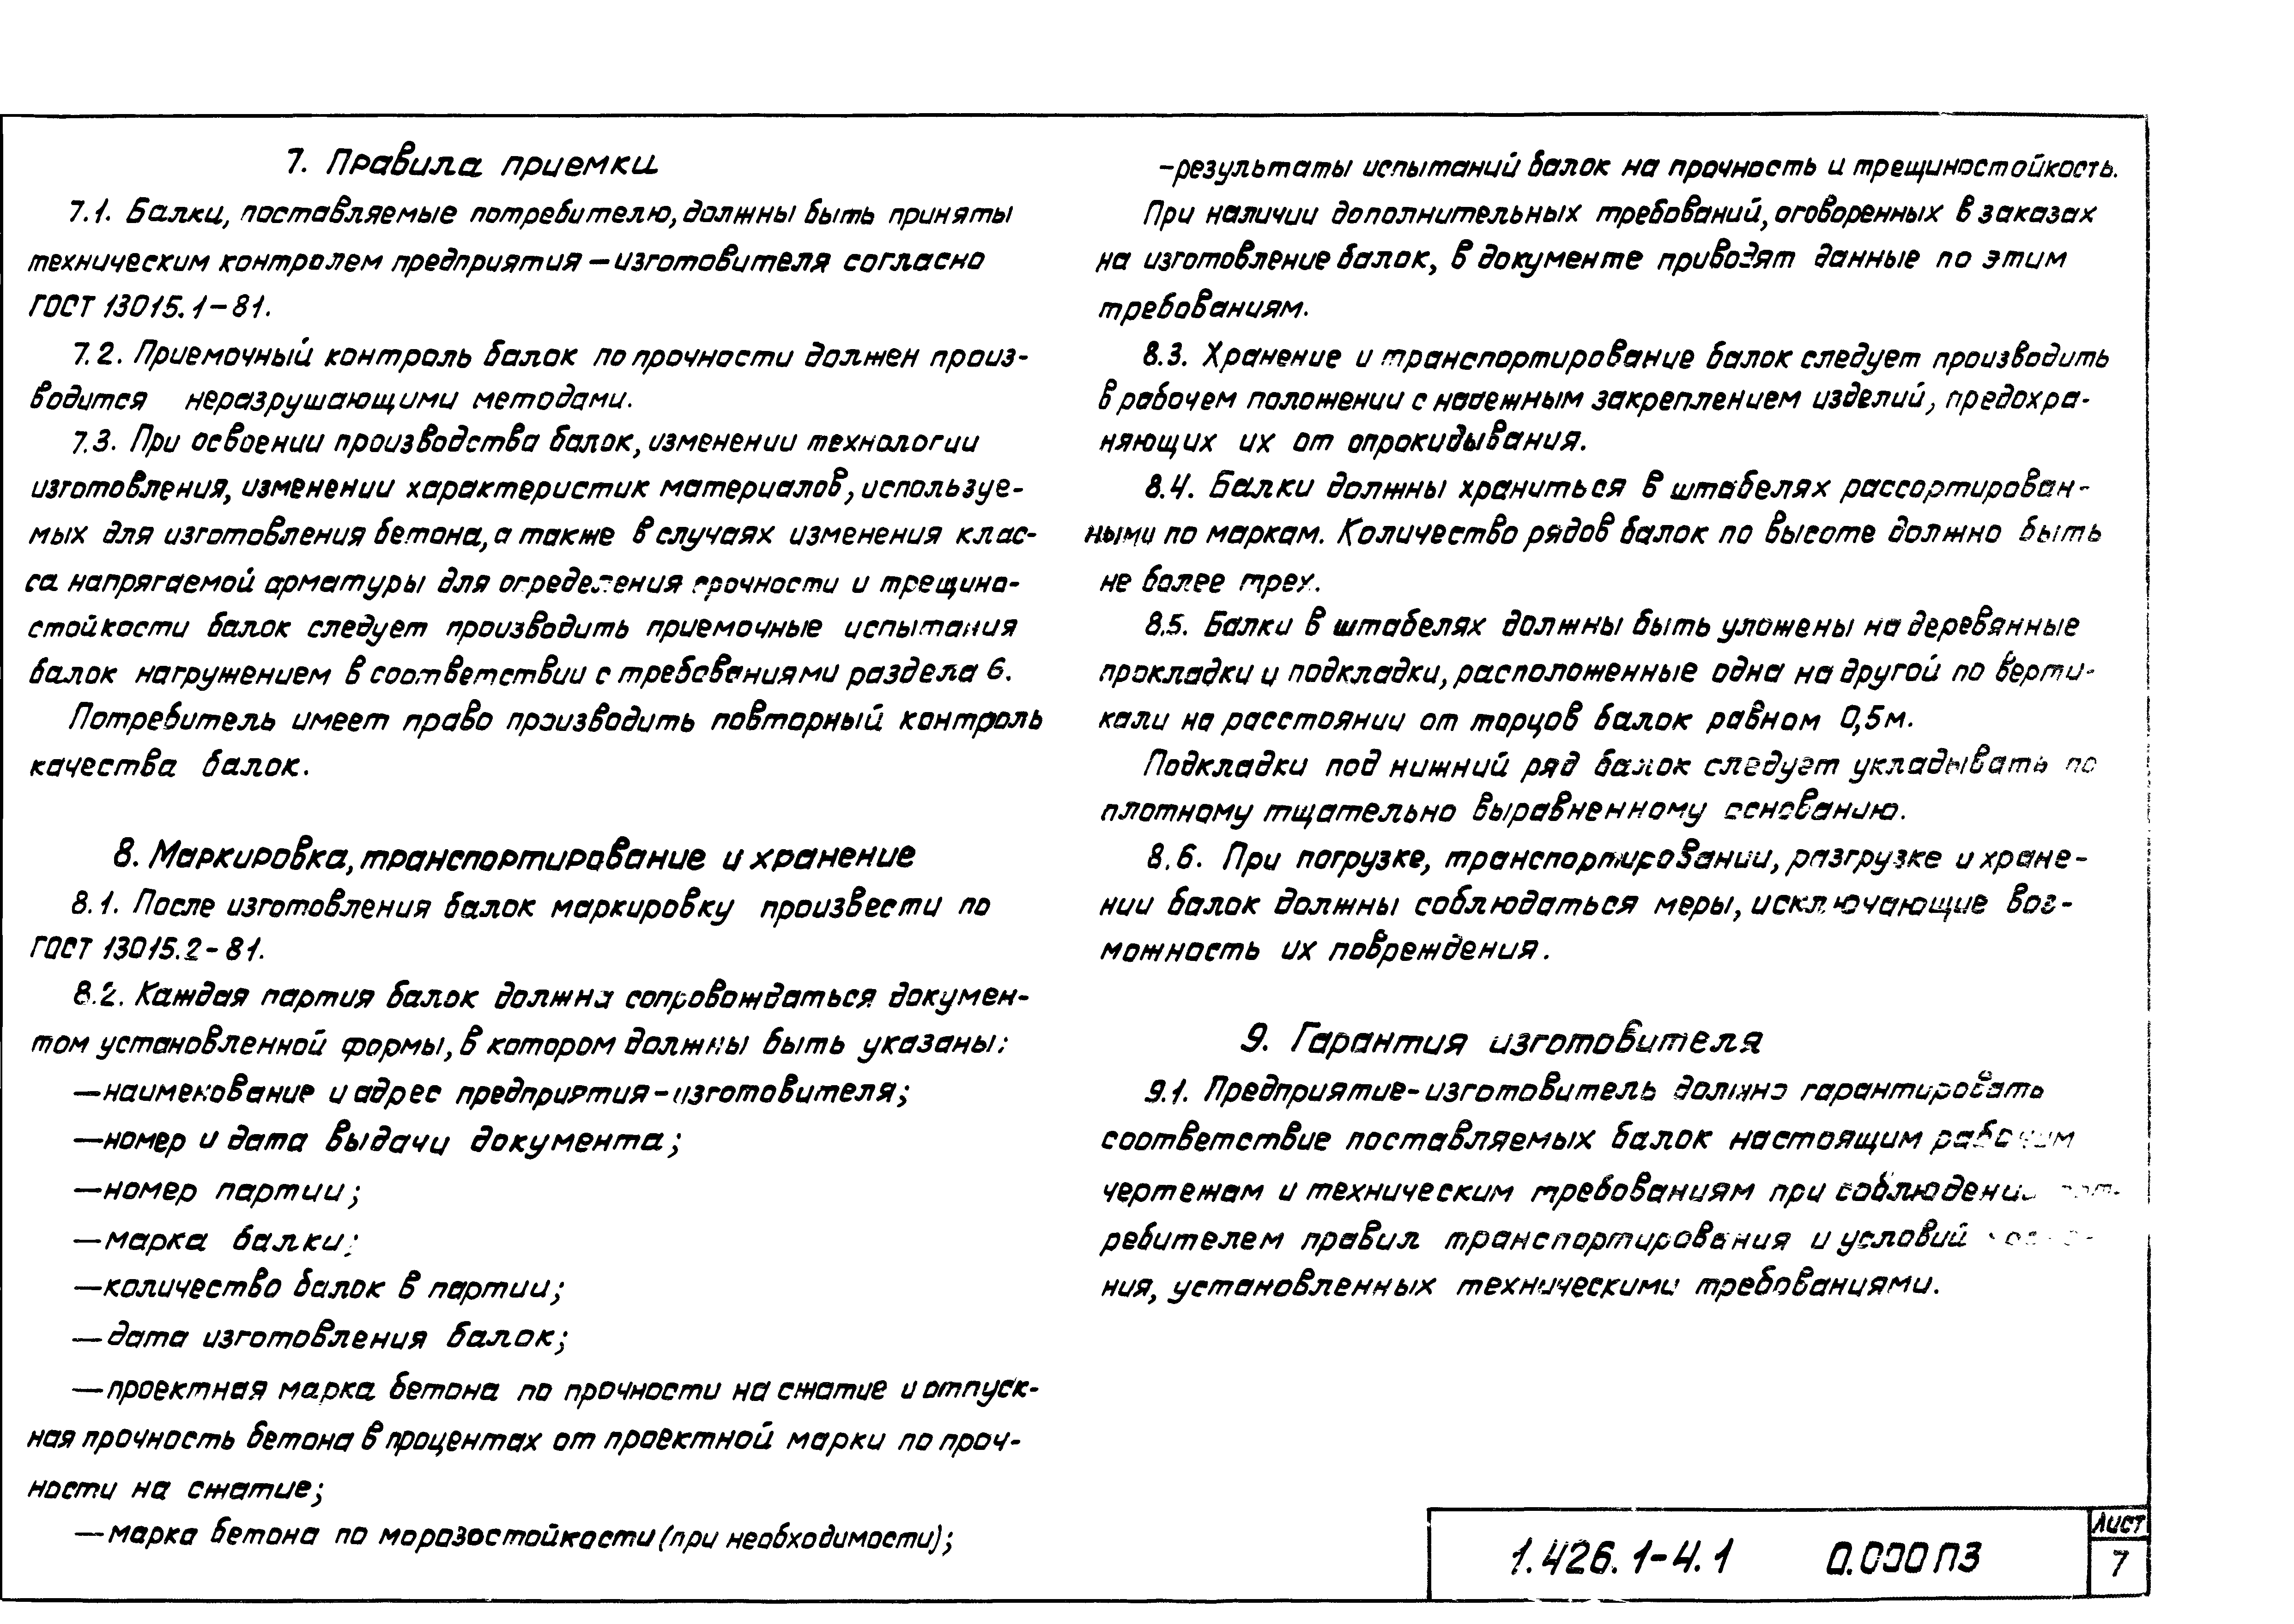 7. Правила приемки
7.1. Балки, поставляемые потребителю, должны быть приняты
техническим контролем предприятия – изготовителя согласно
ГОСТ 13015.1–81.
7.2. Приемочный контроль балок по прочности должен произ-
водится неразрушающими методами.
7.3. При освоении производства балок, изменении технологии
изготовления, изменении характеристик материалов, используе-
мых для изготовления бетона, а также в случаях изменения клас-
са напрягаемой арматуры для определения прочности и трещино-
стойкости балок следует производить приемочные испытания
балок нагружением в соответствии с требованиями раздела 6.
Потребитель имеет право производить повторный контроль
качества балок.
8. Маркировка, транспортирование и хранение
8.1. После изготовления балок маркировку произвести по
ГОСТ 13015.2–81.
8.2. Каждая партия балок должна сопровождаться докумен-
том установленной формы, в котором должны быть указаны:
— наименование и адрес предприятия – изготовителя;
— номер и дата выдачи документа;
— номер партии;
— марка балки;
— количество балок в партии;
— дата изготовления балок;
— проектная марка бетона по прочности на сжатие и отпуск-
ная прочность бетона в процентах от проектной марки по проч-
ности на сжатие;
— марка бетона по морозостойкости (при необходимости);
– результаты испытаний балок на прочность и трещиностойкость.
При наличии дополнительных требований, оговоренных в заказах
на изготовление балок, в документе приводят данные по этим
требованиям.
8.3. Хранение и транспортирование балок следует производить
в рабочем положении с надежным закреплением изделий, предохра-
няющих их от опрокидывания.
8.4. Балки должны храниться в штабелях рассортирован-
ными по маркам. Количество рядов балок по высоте должно быть
не более трех.
8.5. Балки в штабелях должны быть уложены на деревянные
прокладки и подкладки, расположенные одна на другой по верти-
кали на расстоянии от торцов балок равном 0,5м.
Подкладки под нижний ряд балок следует укладывать по
плотному тщательно выравненному основанию.
8.6. При погрузке, транспортировании, разгрузке и хране-
нии балок должны соблюдаться меры, исключающие воз-
можность их повреждения.
9. Гарантия изготовителя
9.1. Предприятие-изготовитель должно гарантировать
соответствие поставляемых балок настоящим рабочим
чертежам и техническим требованиям при соблюдении пот-
ребителем правил транспортирования и условий
ния, установленных техническими требованиями.
1.426.1–4.1 0.000ПЗ
Лист
7